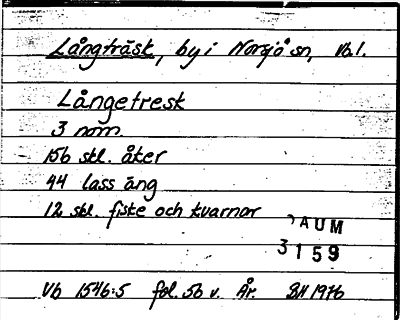 Långträsk, by i Norsjö sn, Vb l.
Långetresk
3 nom.
15b skl. åker
44 lass äng
12 skl. fiske och kvarnar
DAUM
3159
Vb 1546:5 fol. 5b v. År. BH 1976